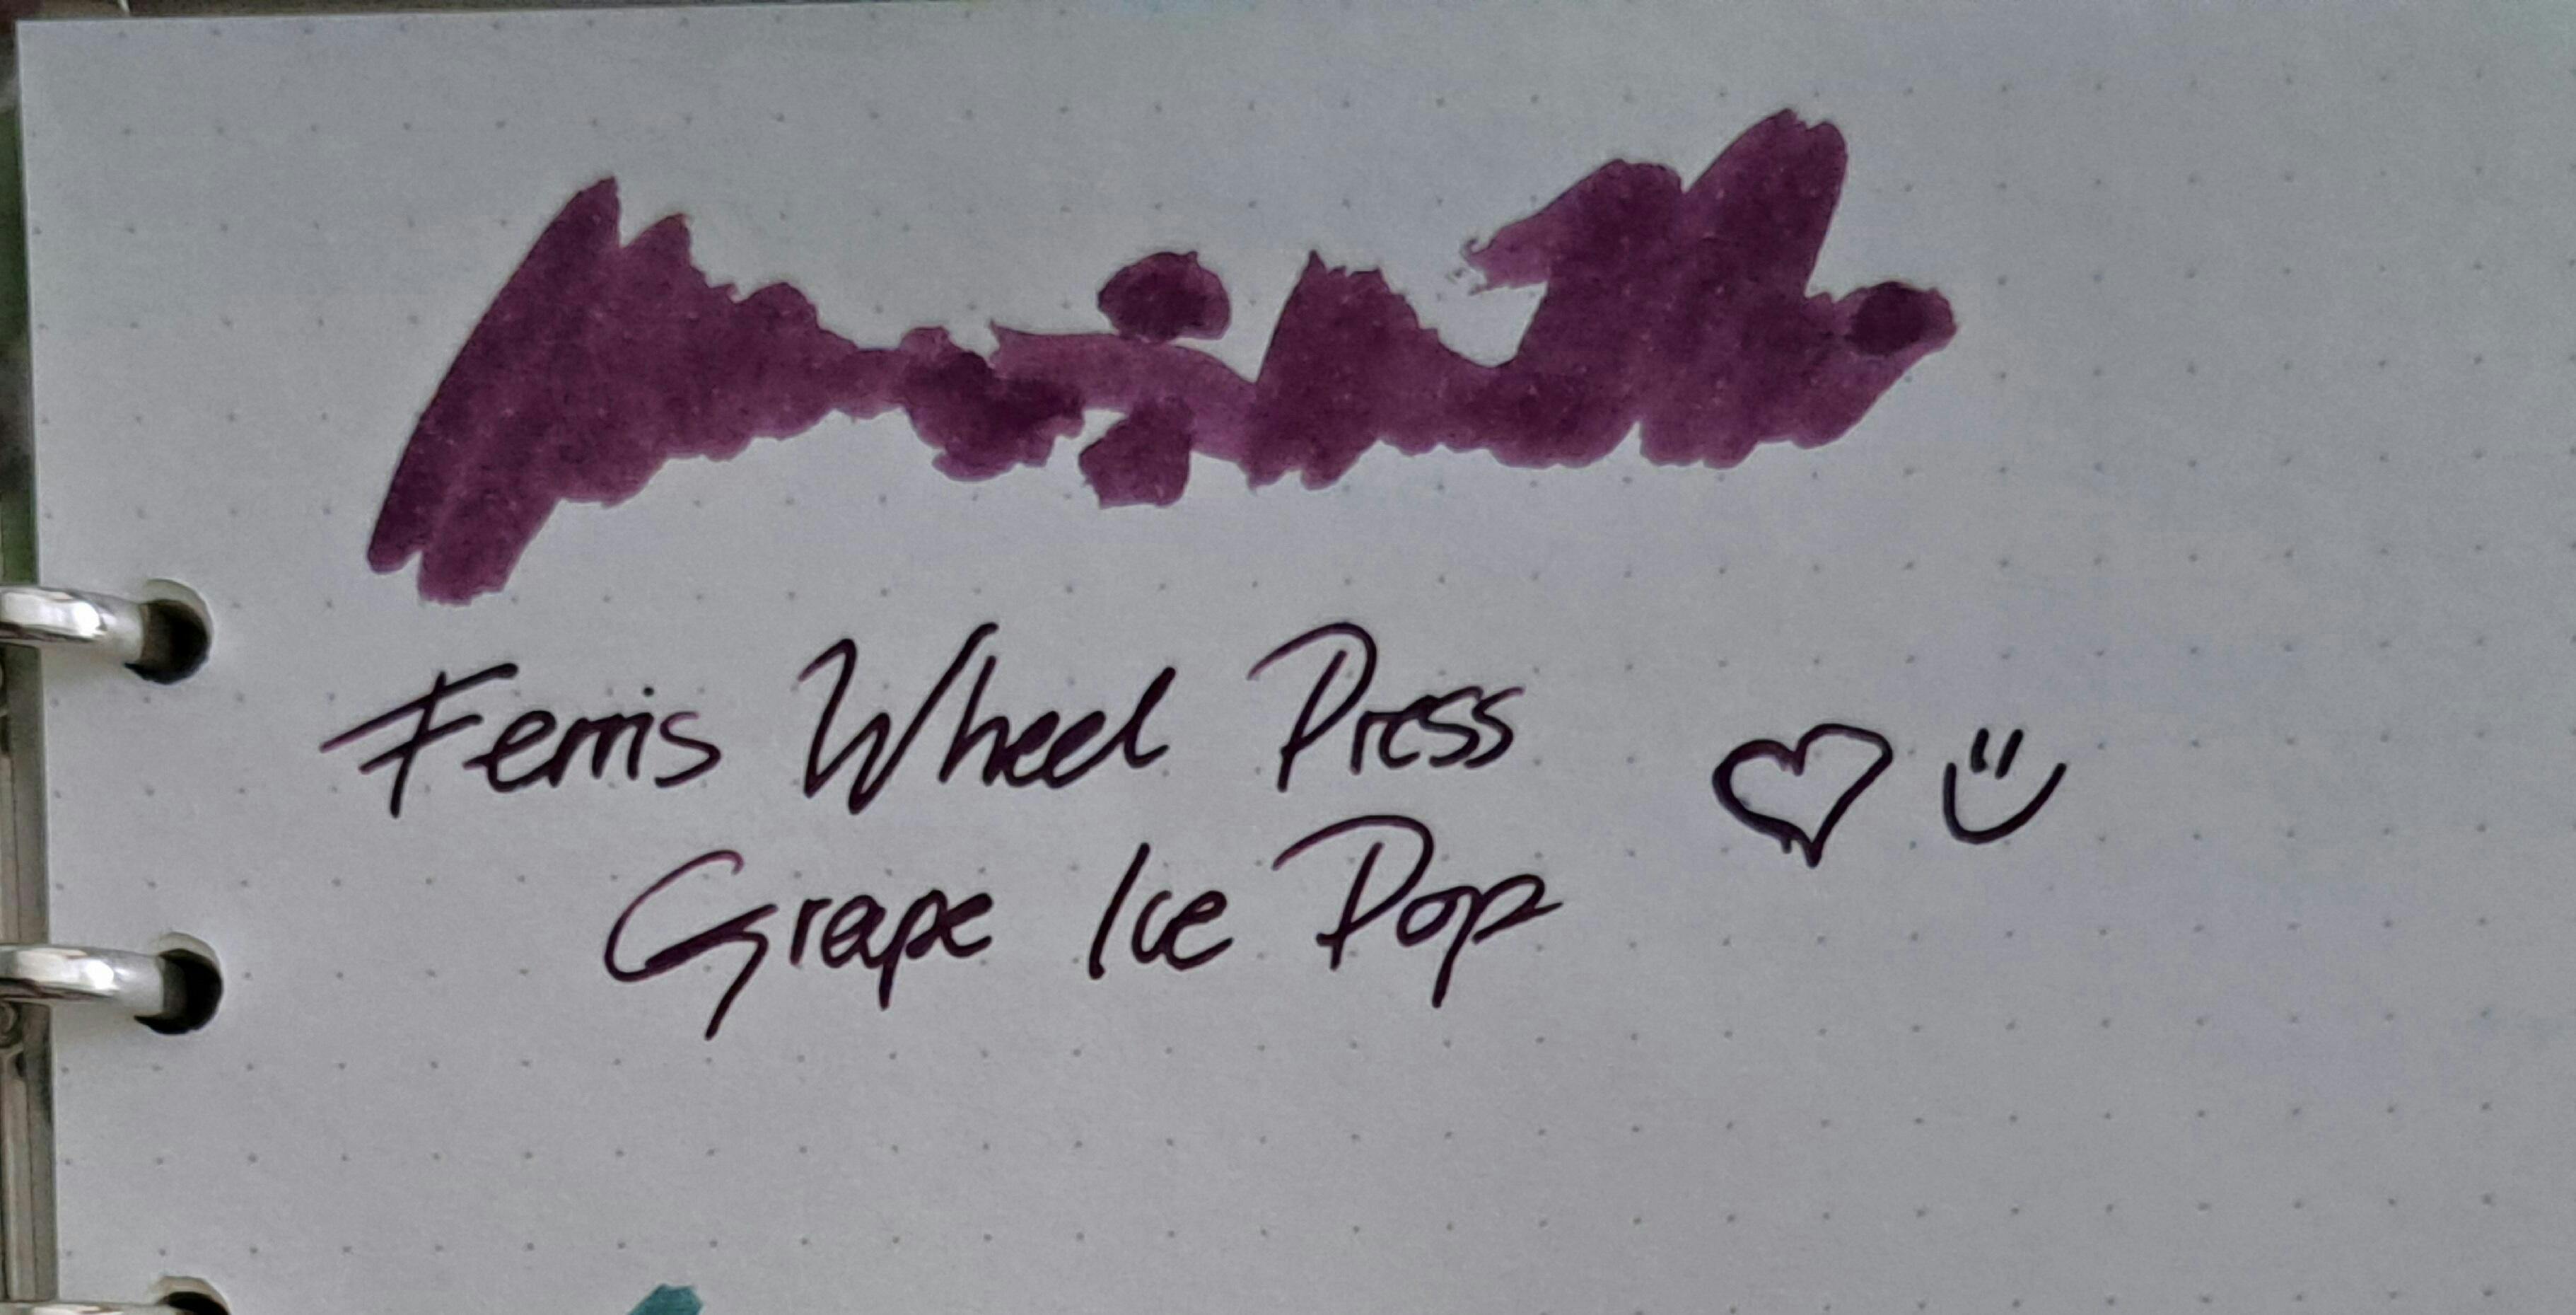 Ferris Wheel Press
Grape Ice Pop